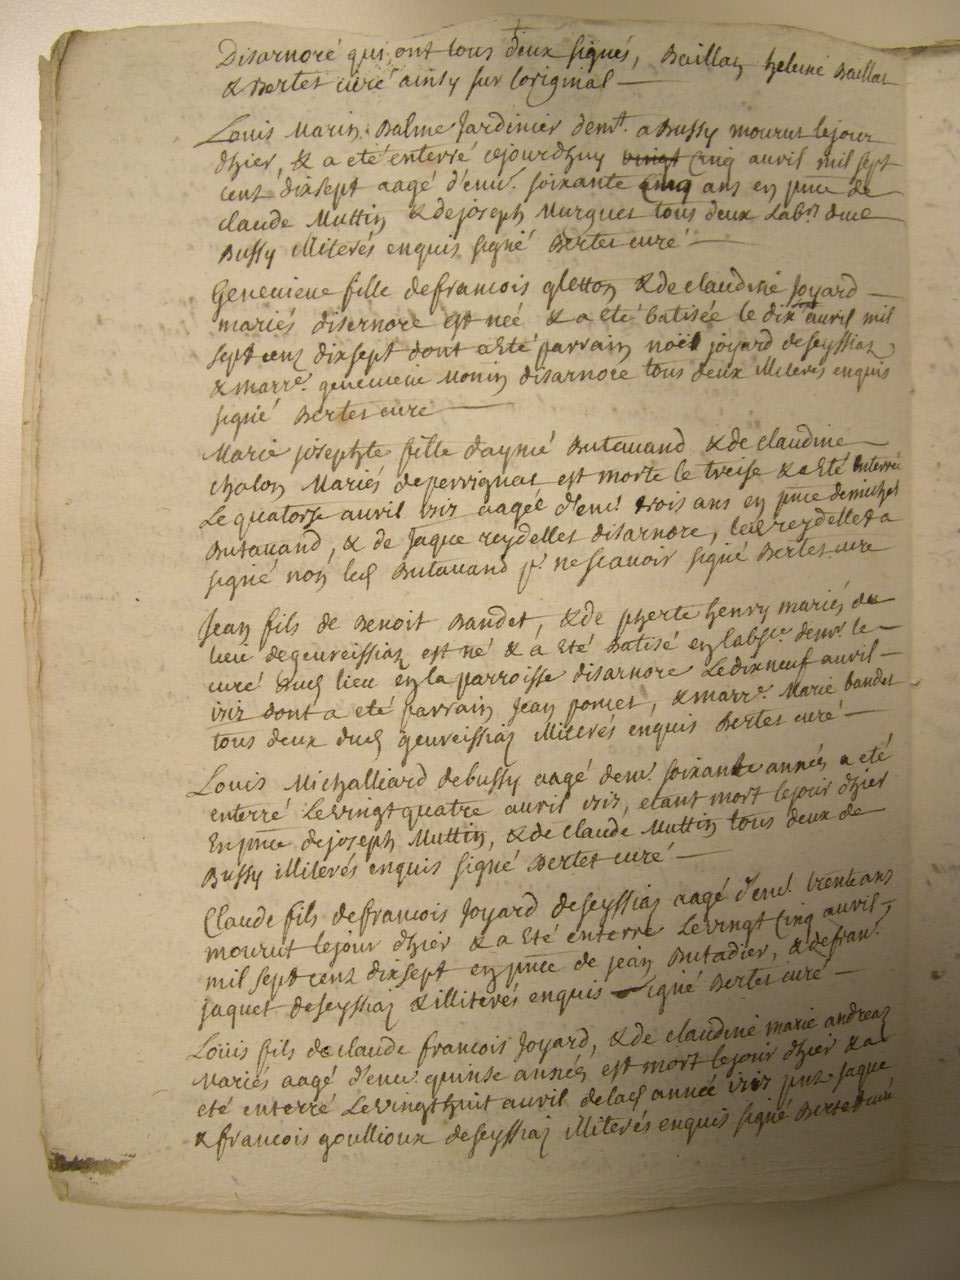 Disarnore qui ont tous deux signés, Baillat helene Baillat
& Bertet curé ainsy sur loriginal
Louis Marin Balme Jardinier demt. a Bussy mourut le jour
dhier, & a eté enterré cejourdhuy vingt cinq avril mil sept
cent dixsept aagé d'env. soixante cinq ans en pnce de
claude Muttin & de joseph Murguet tous deux Labrs. dud
Bussy illiterés enquis signé Bertet curé
Genevieve fille defrancois gletton & de claudine Joyard
mariés disernore est neé & a eté batisée le dix avril mil
sept cens dixsept dont a eté parrain noël joyard deseyssiaz
& marre. genevieve Monin disarnore tous deux illiterés enquis
signé Bertet curé
Marie josephte fille d'aymé Butavand & de claudine
chalon Mariés deperrignat est morte le treise & a eté enterrée
Le quatorse avril 1717 aagée d'env. trois ans en pnce de michel
Butavand, & de Jaque reydellet disarnore, led reydellet a
signé non led Butavand pr. ne scavoir signé Bertet curé
Jean fils de Benoit Bandet, & de pherte henry mariés du
lieu degeureissiaz est né & a eté Batisé en labsce. demr. le
curé dud lieu en la parroisse disarnore Le dixneuf avril
1717 dont a eté parrain Jean poncet, & marre. Marie bandet
tous deux dud geureissiaz illiterés enquis Bertet curé
Louis Michalliard debussy aagé denv. soixante années a eté
enterré Levingtquatre avril 1717, etant mort lejour dhier
En pnce dejoseph Muttin, & de claude Muttin tous deux de
Bussy illiterés enquis signé Bertet curé
Claude fils defrancois Joyard deseyssiaz aagé d'env. trente ans
mourut lejour dhier & a eté enterré Levingt cinq avril
mil sept cens dixsept en pnce de jean Butadier, & defran.
jaquet deseyssiaz & illiterés enquis signé Bertet curé
Loüis fils de claude francois Joyard, & de claudine marie andreaz
Mariés aagé d'env. quinse années est mort lejour dhier & a
eté enterré Levingthuit avril delad année 1717 pnt Jaque
& francois goullioux deseyssiaz illiterés enquis signé Bertet curé